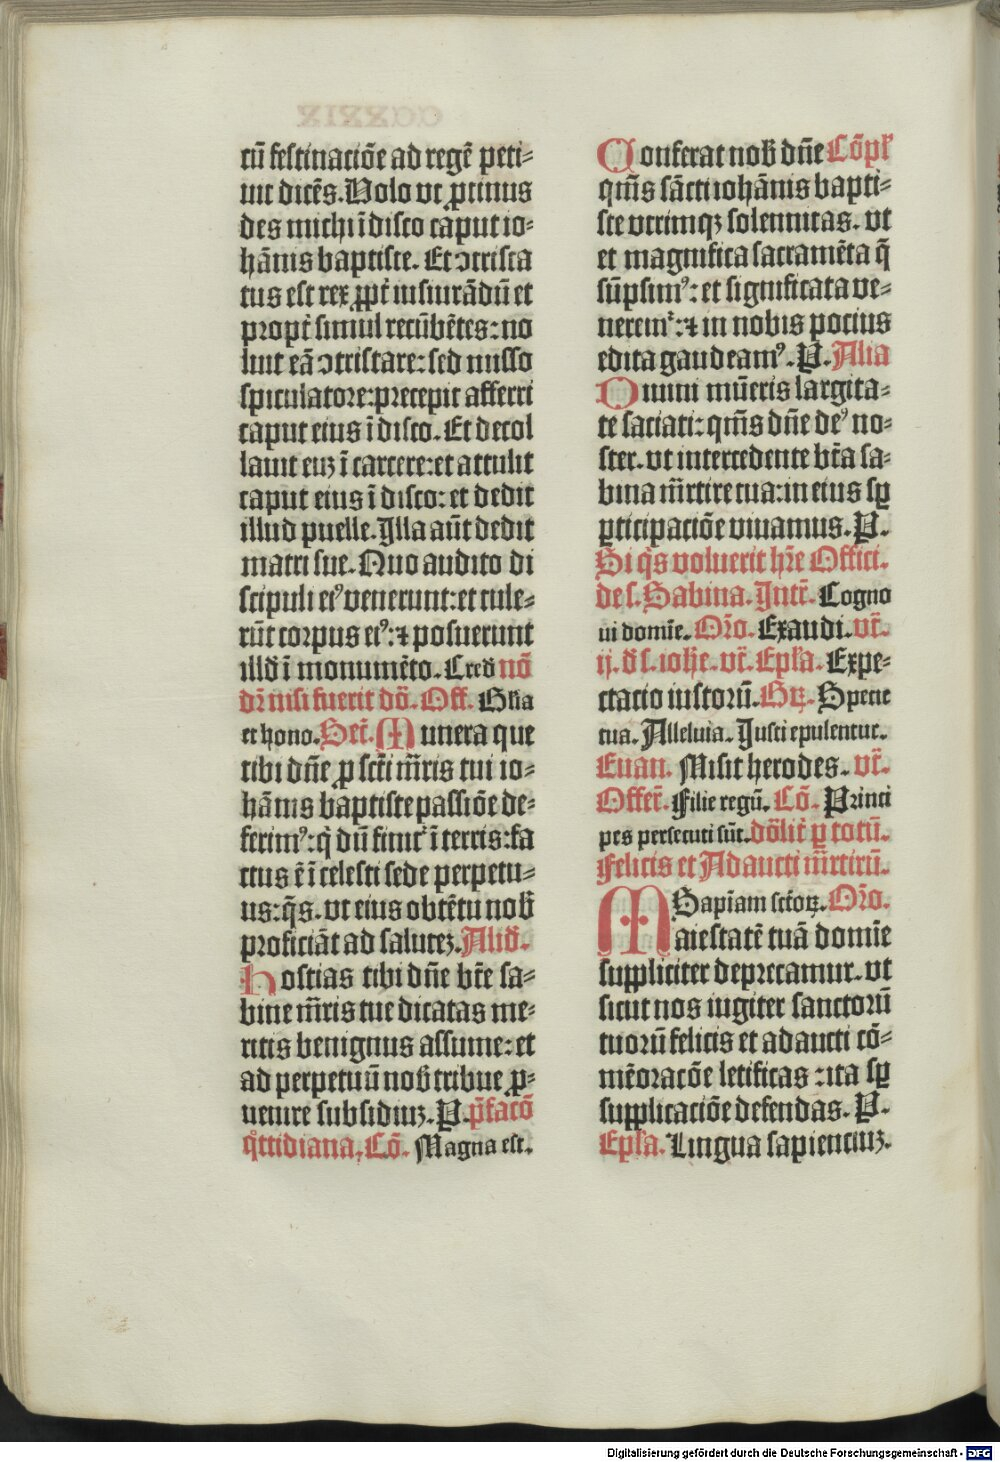 cū festinaciōe ad regē peti⸗
uit dicēs. Uolo ut ꝓtinus
des michi ī disco caput io⸗
hānis baptiste. Et ↄtrista
tus est rex ꝓpt̄ iusiurādū et
propt̄ simul recūbētes: no
luit eā ↄtristare: sed misso
spiculatore: precepit afferri
caput eius ī disco. Et decol
lauit euꝫ ī carcere: et attulit
caput eius ī disco: et dedit
illud puelle. Illa aūt dedit
matri sue. Quo audito di
scipuli eiꝰ venerunt: et tule⸗
rūt corpus eiꝰ: ⁊ posuerunt
illđ ī monumēto. Credo nō
dr̄ nisi fuerit dō. Off. Glīa
et hono. Secr̄. Munera que
tibi dn̄e ꝓ sctī m̄ris tui io⸗
hānis baptiste passiōe de⸗
ferimꝰ: q̇ dū fimꝰ ī terris: fa
ctus ē ī celesti sede perpetu⸗
us: q̄s. vt eius obtētu nob̄
proficiāt ad saluteꝫ. Aliđ.
Hostias tibi dn̄e bt̄e sa⸗
bine m̄ris tue dicatas me⸗
ritis benignus assume: et
ad perpetuū nob̄ tribue ꝓ⸗
uenire subsidiuꝫ. P. p̄facō
q̊ttidiana. Cō. Magna est.
Conferat nob̄ dn̄e Cōpl̄
qm̄s sācti iohānis bapti⸗
ste vtrimqꝫ solennitas. vt
et magnifica sacramēta q̄
sūpsimꝰ: et significata ve⸗
neremꝰ: ⁊ in nobis pocius
edita gaudeamꝰ. P. Alia
Omini mūeris largita⸗
te saciati: qm̄s dn̄e deꝰ no⸗
ster. vt intercedente bt̄a sa⸗
bina m̄rtire tua: in eius sꝑ
ꝑticipaciōe viuamus. P.
Si q̇s voluerit hr̄e Offici.
de s. Sabina. Intr̄. Cogno
ui domīe. Or̄o. Exaudi. vt̄.
ij. đ s. iohe. vt̄. Epl̄a. Expe⸗
ctatio iustorū. Gꝝ. Specie
tua. Alleluia. Iusti epulentur.
Euan. Misit herodes. vt̄.
Offer̄. Filie regū. Cō. Princi
pes persecuti sūt. dōlit̄ ꝑ totū.
Felicis et Adaucti m̄rtirū.
Sapīam sctōꝝ. Or̄o.
Maiestatē tuā domīe
suppliciter deprecamur. vt
sicut nos iugiter sanctorū
tuorū felicis et adaucti cō⸗
mēoracōe letificas: ita sꝑ
supplicaciōe defendas. P.
Epl̄a. Lingua sapienciuꝫ.
Digitalisierung gefördert durch die Deutsche Forschungsgemeinschaft - DFG